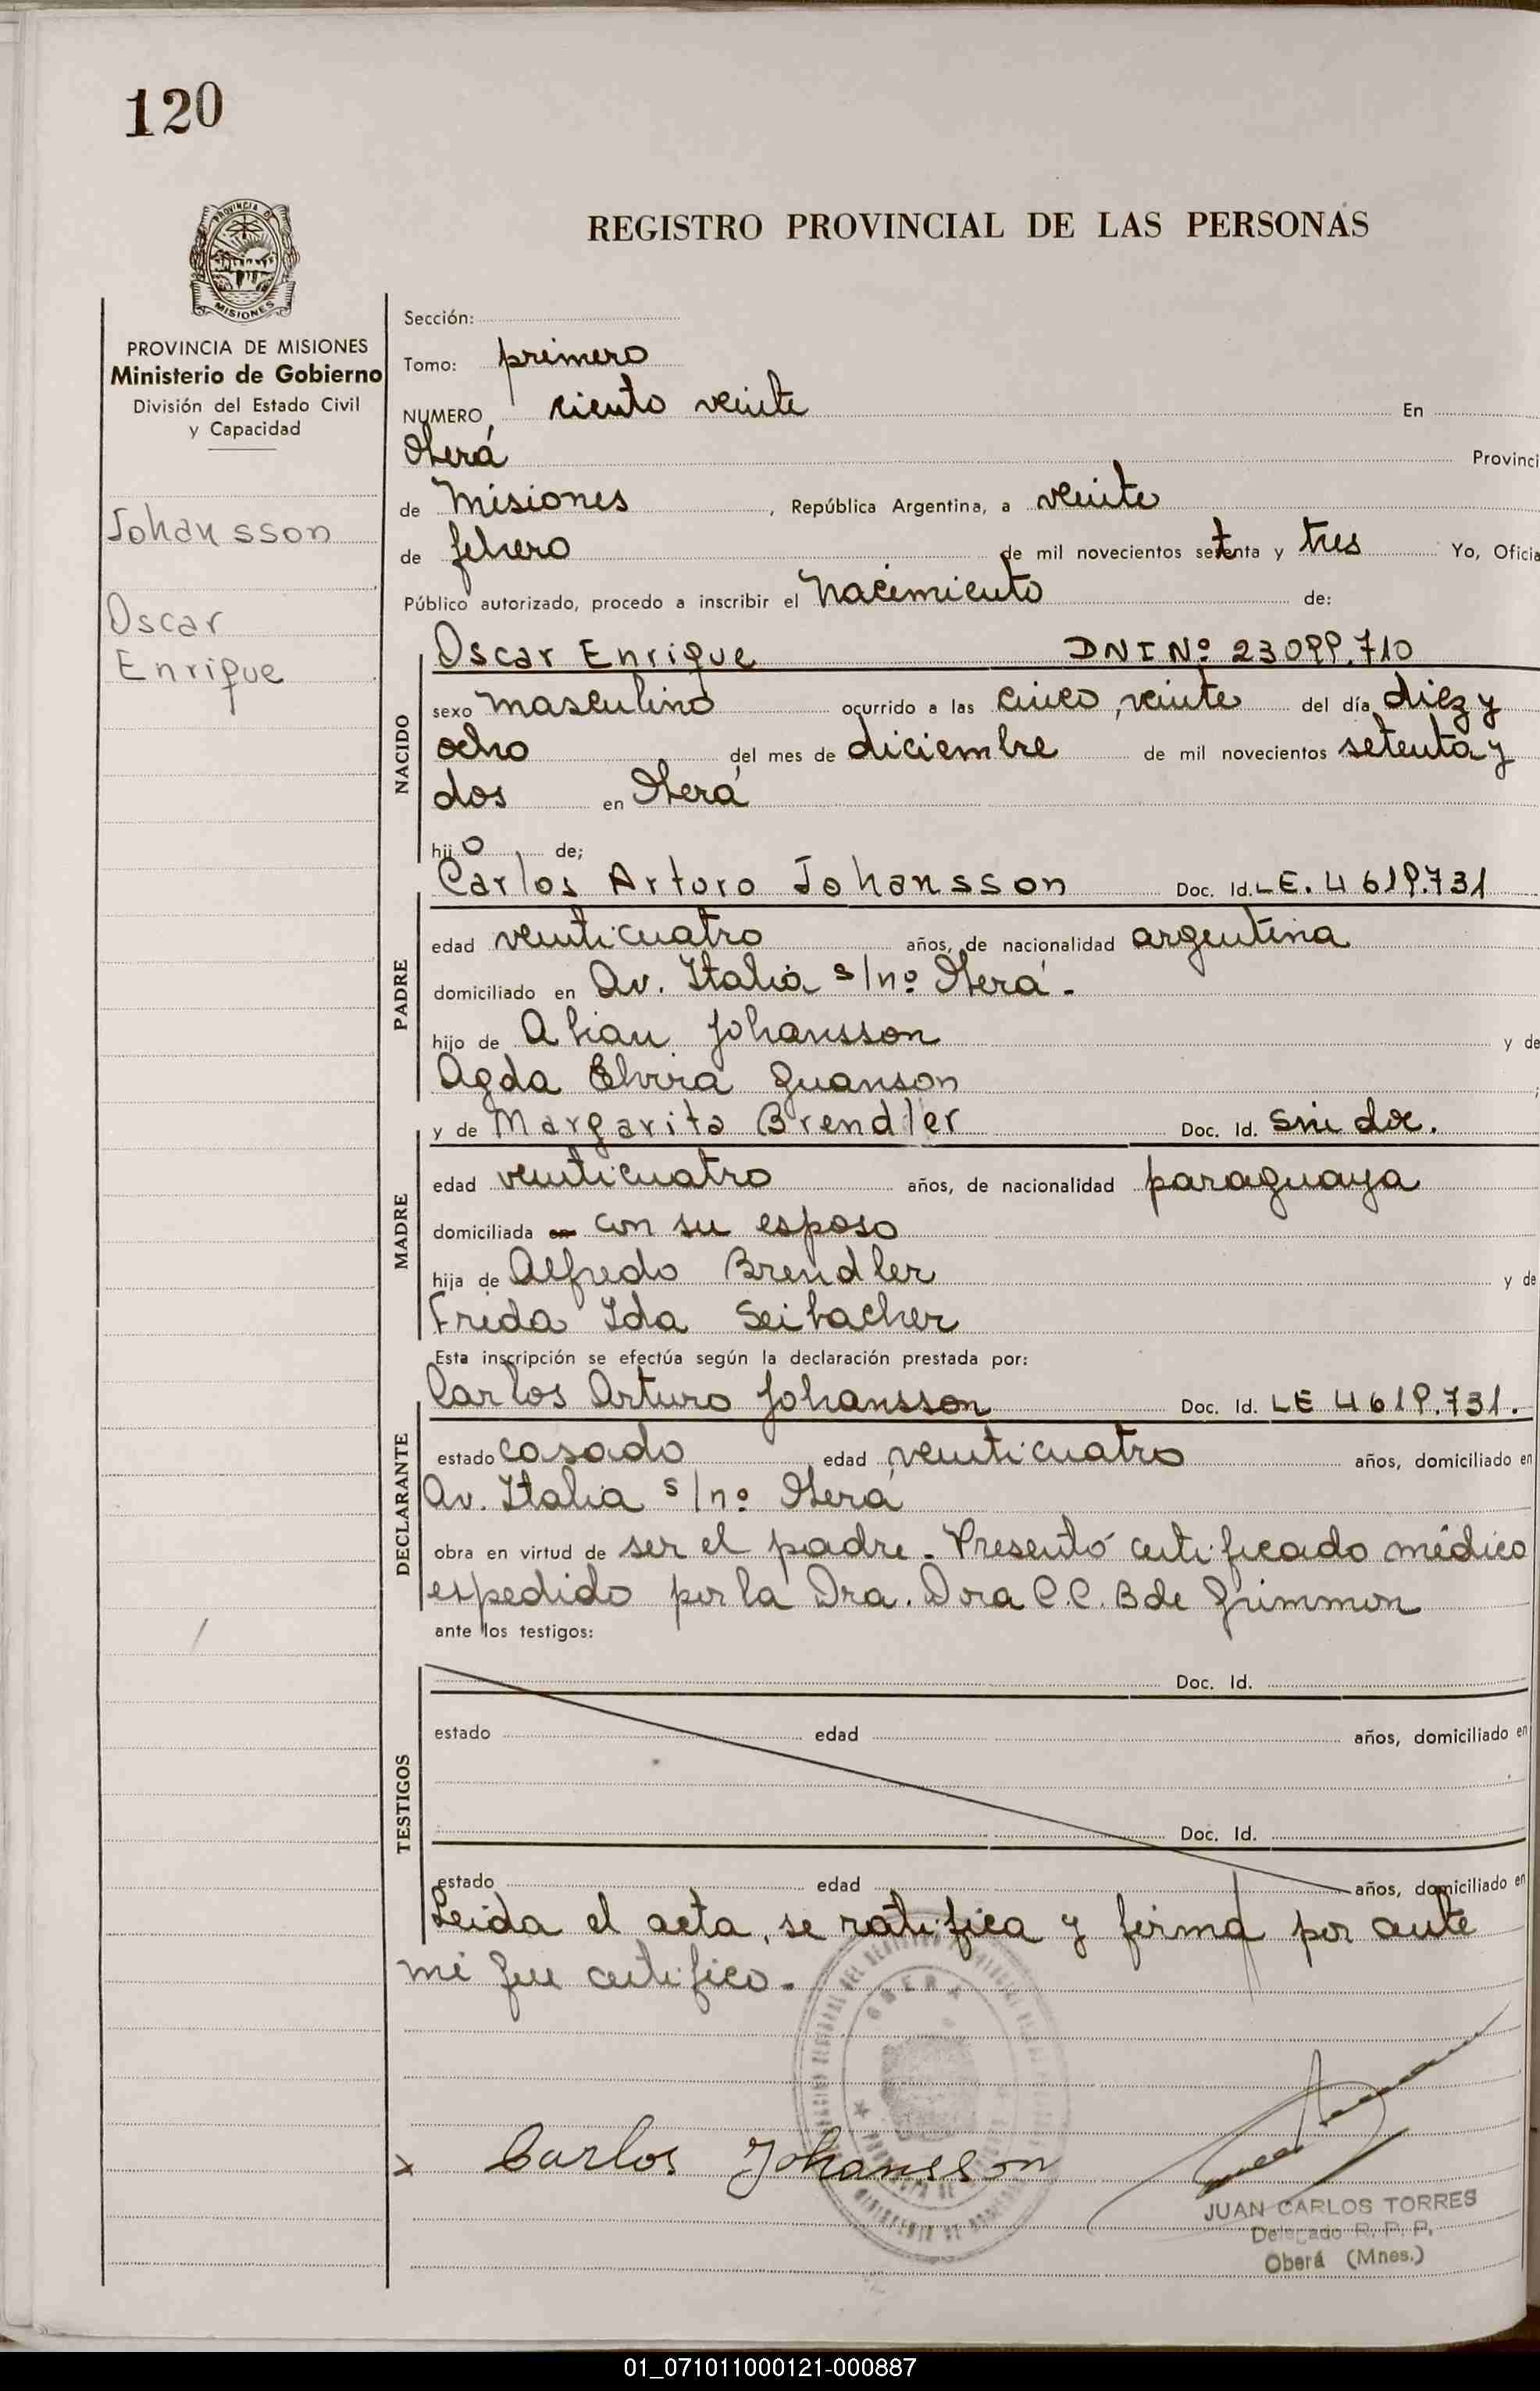 120
PROVINCIA DE
MISIONES
REGISTRO PROVINCIAL DE LAS PERSONAS
PROVINCIA DE MISIONES
Ministerio de Gobierno
División del Estado Civil
y Capacidad
Johansson
Oscar
Enrique
Sección:
Tomo: primero
NUMERO ciento veinte En
Oberá Provinci
de Misiones, República Argentina, a veinte
de febrero de mil novecientos setenta y tres Yo, Oficia
Público autorizado, procedo a inscribir el Nacimiento de:
NACIDO
Oscar Enrique DNI Nº 23099.710
sexo masculino ocurrido a las cinco, veinte del día diez y
ocho del mes de diciembre de mil novecientos setenta y
dos en Oberá
hijo de;
PADRE
Carlos Arturo Johansson Doc. Id. LE. 4619.731
edad veinticuatro años, de nacionalidad argentina
domiciliado en Av. Italia s/nº Oberá.-
hijo de Johansson y de
Agda Elvira Juanson ;
MADRE
y de Margarita Brendler Doc. Id. sin doc.
edad veinticuatro años, de nacionalidad paraguaya
domiciliada en con su esposo
hija de Alfredo Brendler y de
Frida Ida Seibacher
Esta inscripción se efectúa según la declaración prestada por:
DECLARANTE
Carlos Arturo Johansson Doc. Id. LE 4619.731.
estado casado edad veinticuatro años, domiciliado en
Av. Italia s/nº Oberá
obra en virtud de ser el padre.- Presentó certificado médico
espedido por la Dra. Dora C.C. B de
ante los testigos:
TESTIGOS
Doc. Id.
estado edad años, domiciliado en
Doc. Id.
estado edad años, domiciliado en
Leida el acta, se ratifica y firma por ante
mi que certifico.-
x Carlos Johansson
OBERA
JUAN CARLOS TORRES
Delegado R. P. P.
Oberá (Mnes.)
01_071011000121-000887